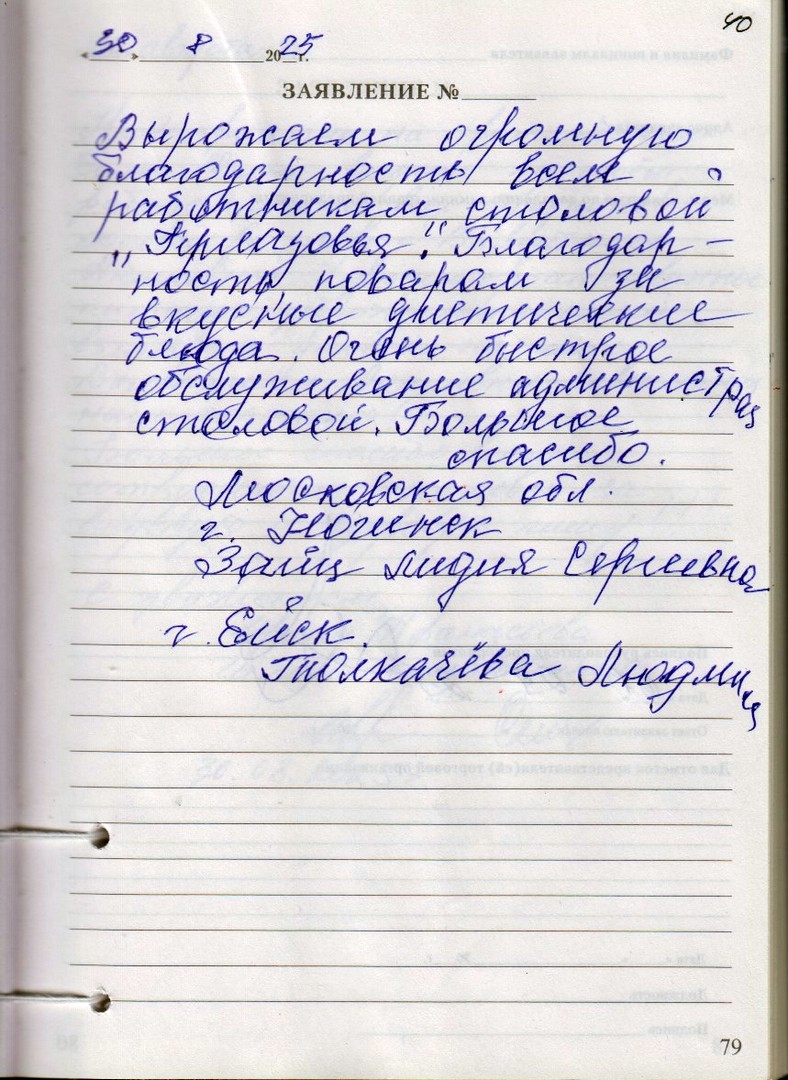 40
«30» 8 2025 г.
ЗАЯВЛЕНИЕ №
Вырожаем огромную
благодарность всем
работникам столовой
"Приазовья". Благодар-
ность поварам за
вкусные диетические
блюда. Очень быстрое
обслуживание администрац
столовой. Большое
спасибо.
Московская обл.
г. Ногинск
Заяц Лидия Сергеевна
г. Ейск.
Толкачёва Людмила
79